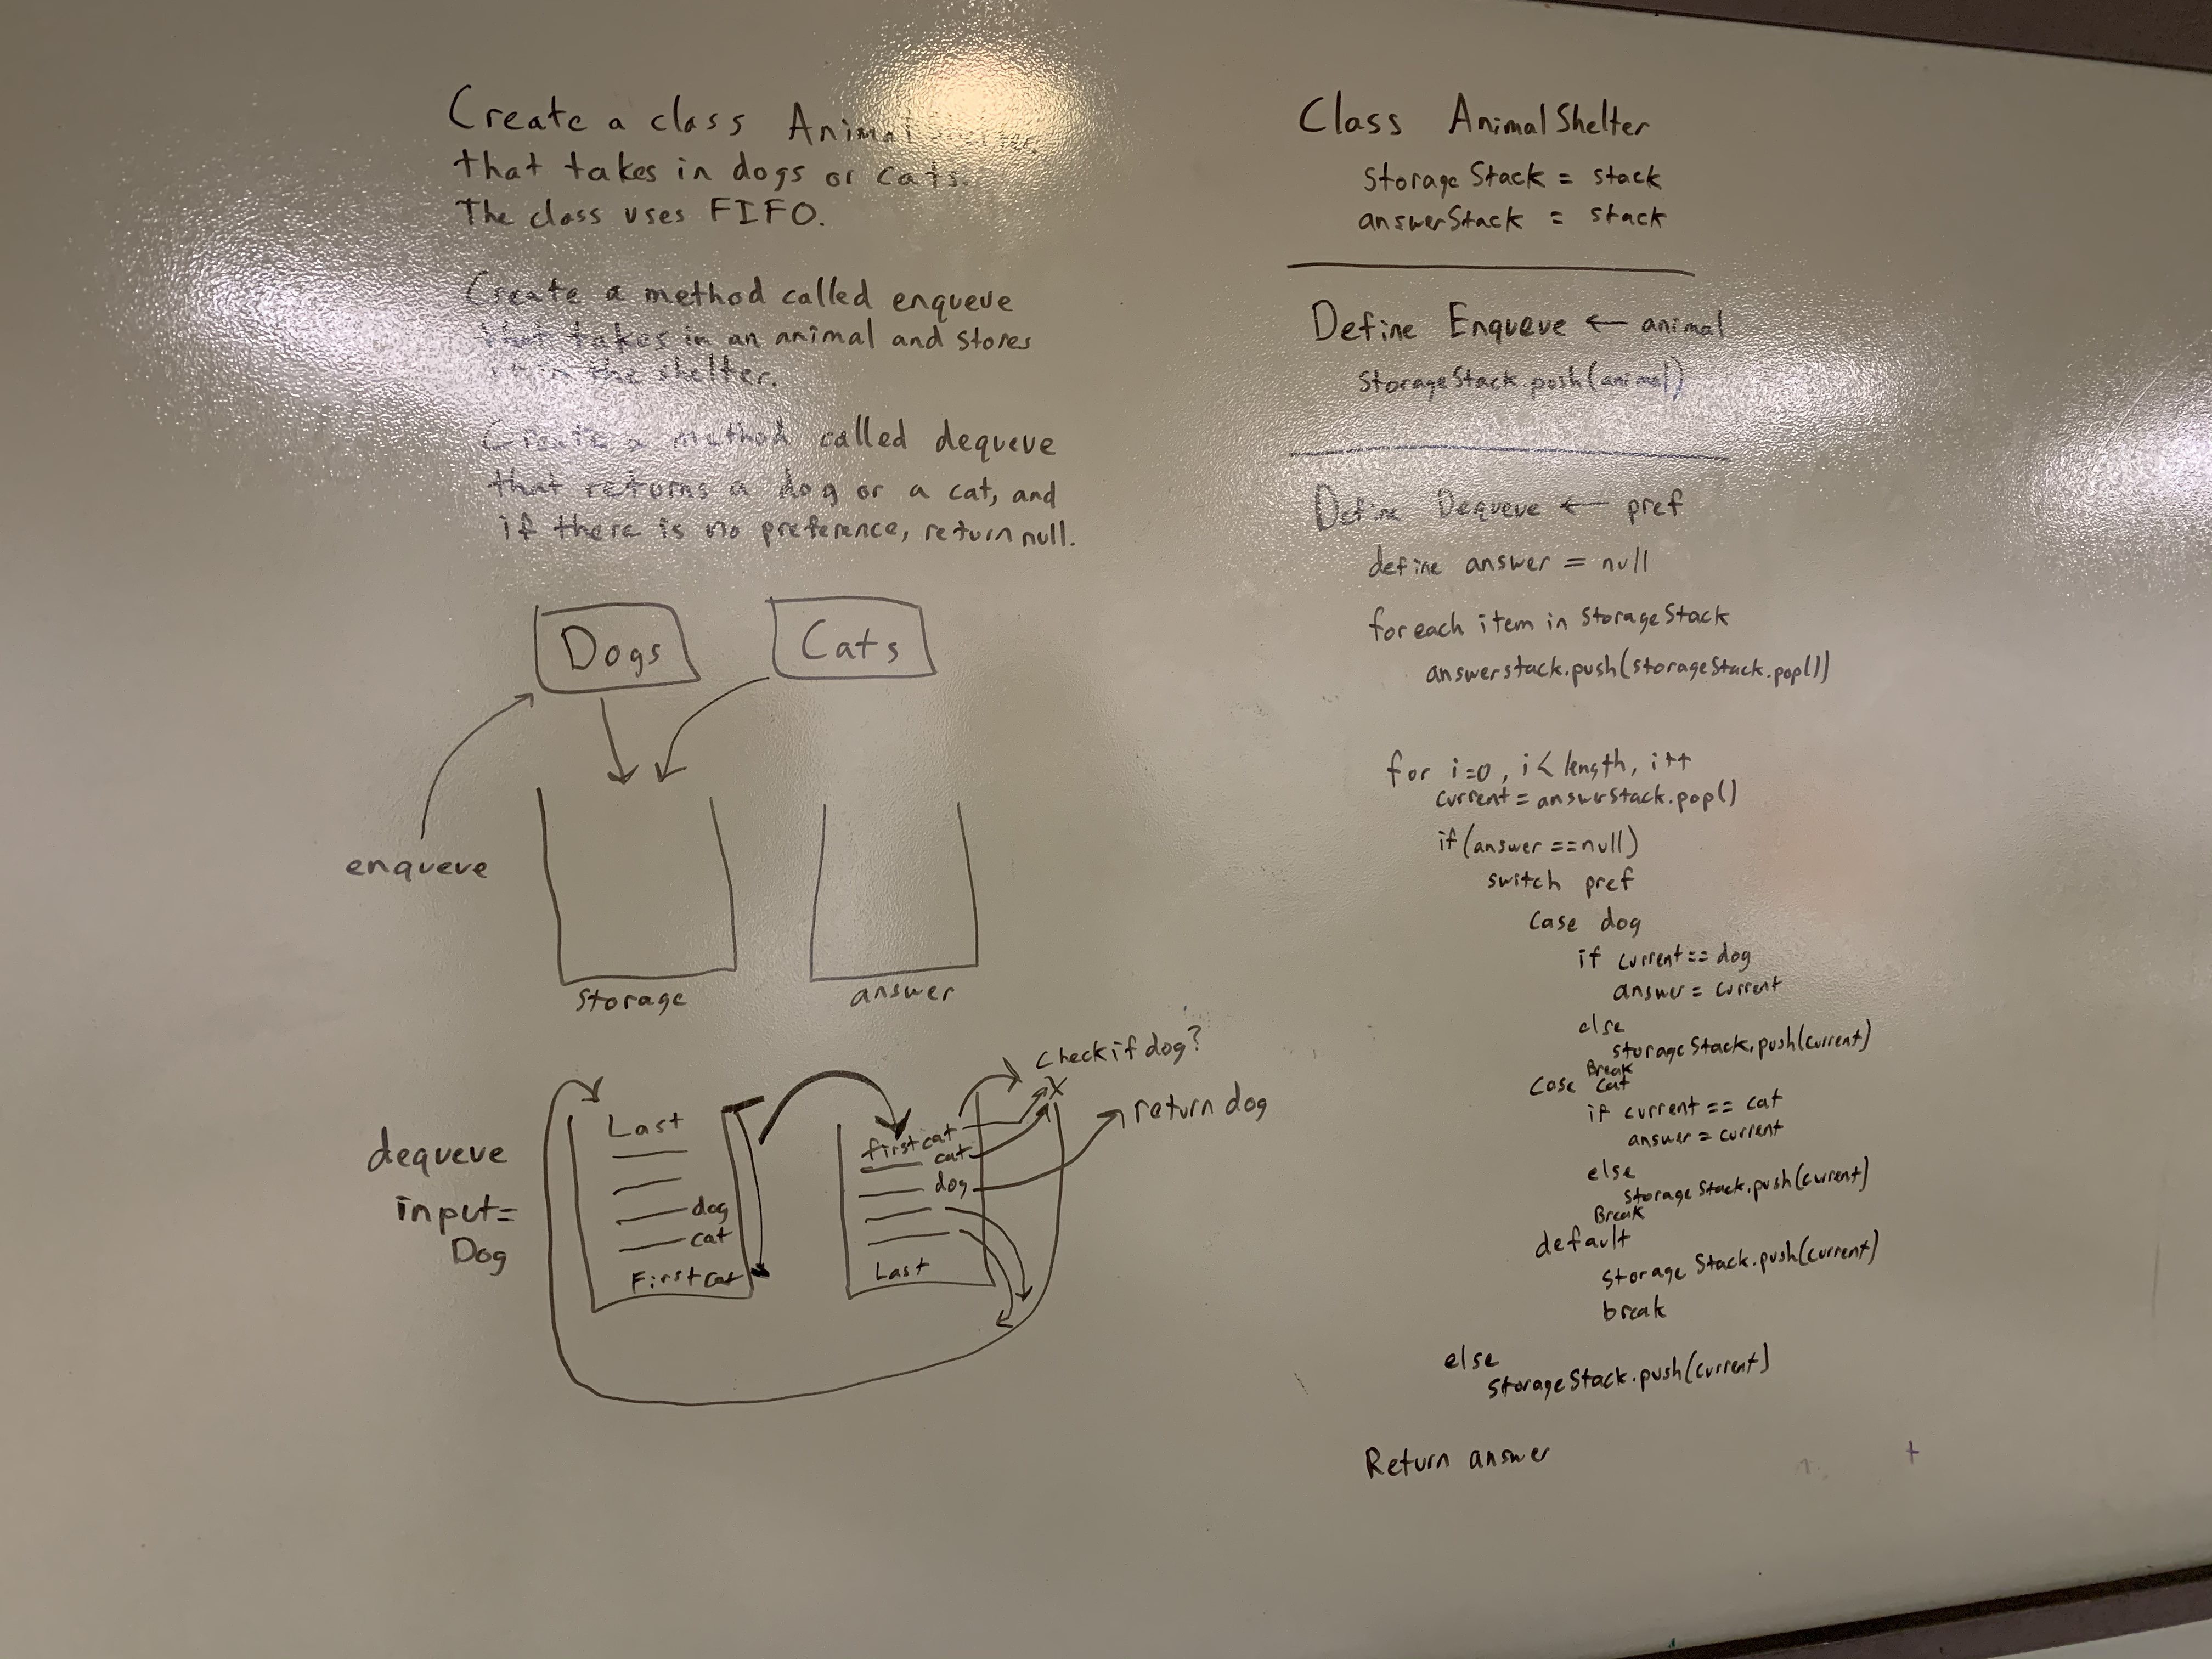 Create a class Animal Shelter
that takes in dogs or cats.
The class uses FIFO.
Create a method called enqueue
that takes in an animal and stores
it in the shelter.
Create a method called dequeue
that returns a dog or a cat, and
if there is no preference, return null.
Dogs
Cats
enqueue
storage
answer
dequeue
input=
Dog
Last
dog
cat
First cat
first cat
cat
dog
Last
Check if dog?
return dog
Class AnimalShelter
storageStack = stack
answerStack = stack
Define Enqueue ← animal
storageStack.push(animal)
Define Dequeue ← pref
define answer = null
foreach item in storageStack
answerstack.push(storageStack.pop())
for i=0, i< length, i++
current = answerStack.pop()
if (answer ==null)
switch pref
Case dog
if current == dog
answer = current
else
storageStack.push(current)
Break
Case cat
if current == cat
answer = current
else
storageStack.push(current)
Break
default
storageStack.push(current)
break
else
storageStack.push(current)
Return answer